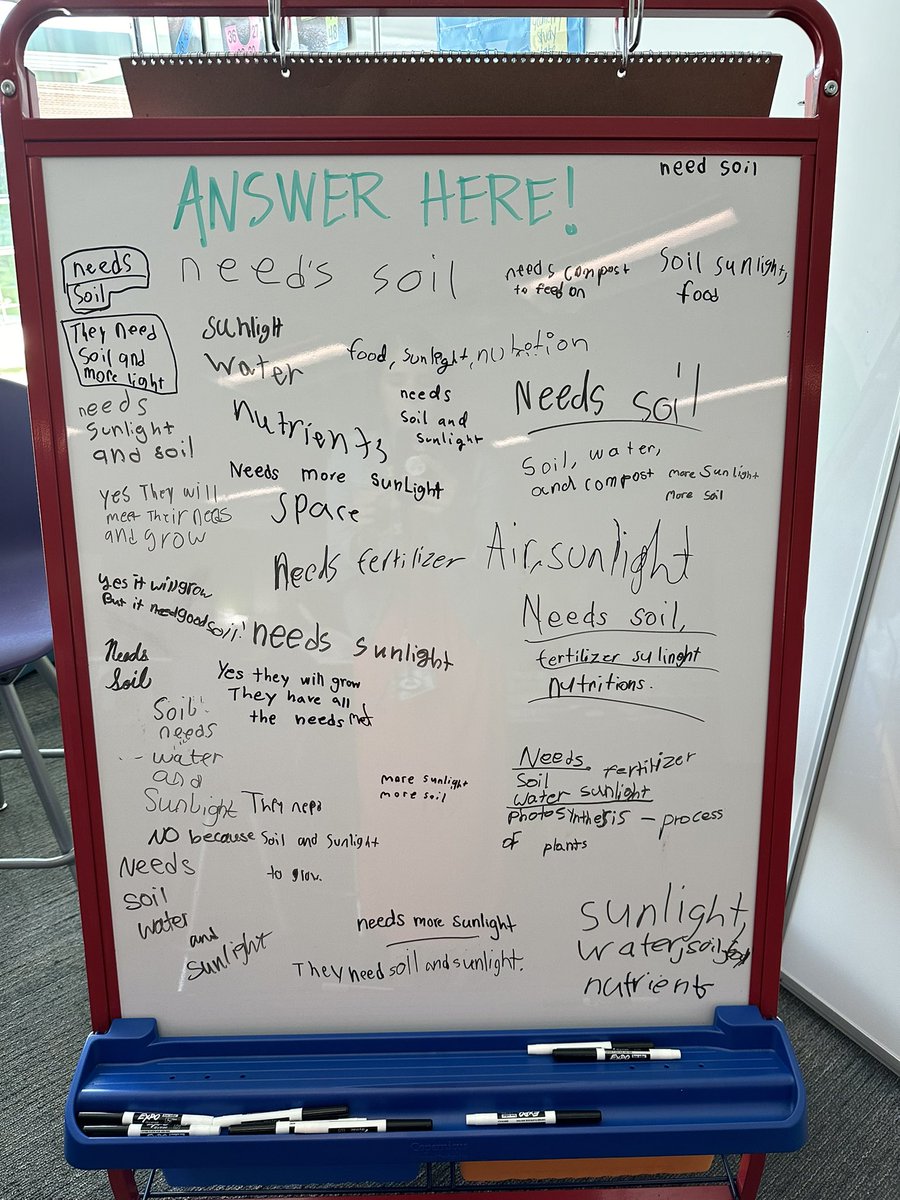 ANSWER HERE!
need soil
needs
soil
need's soil
needs compost
to feed on
Soil sunlight,
food
They need
soil and
more light
sunlight
water
food, sunlight, nutrition
needs
soil and
sunlight
Needs soil
needs
sunlight
and soil
nutrients
Needs more sunLight
Soil, water,
and compost
more sunlight
more soil
yes They will
meet Their needs
and grow
space
Needs fertilizer
Air, sunlight
yes it will grow
But it need good soil!
needs sunlight
Needs soil,
fertilizer sulinght
nutritions.
Needs
Soil
Yes they will grow
They have all
the needs met
Soil
needs
water
and
Sunlight
more sunlight
more soil
Needs fertilizer
Soil
water sunlight
photosinthesis - process
of plants
They need
NO because soil and sunlight
to grow.
Needs
soil
water
and
sunlight
needs more sunlight
They need soil and sunlight.
sunlight,
water, soil
nutrients
EXPO
EXPO